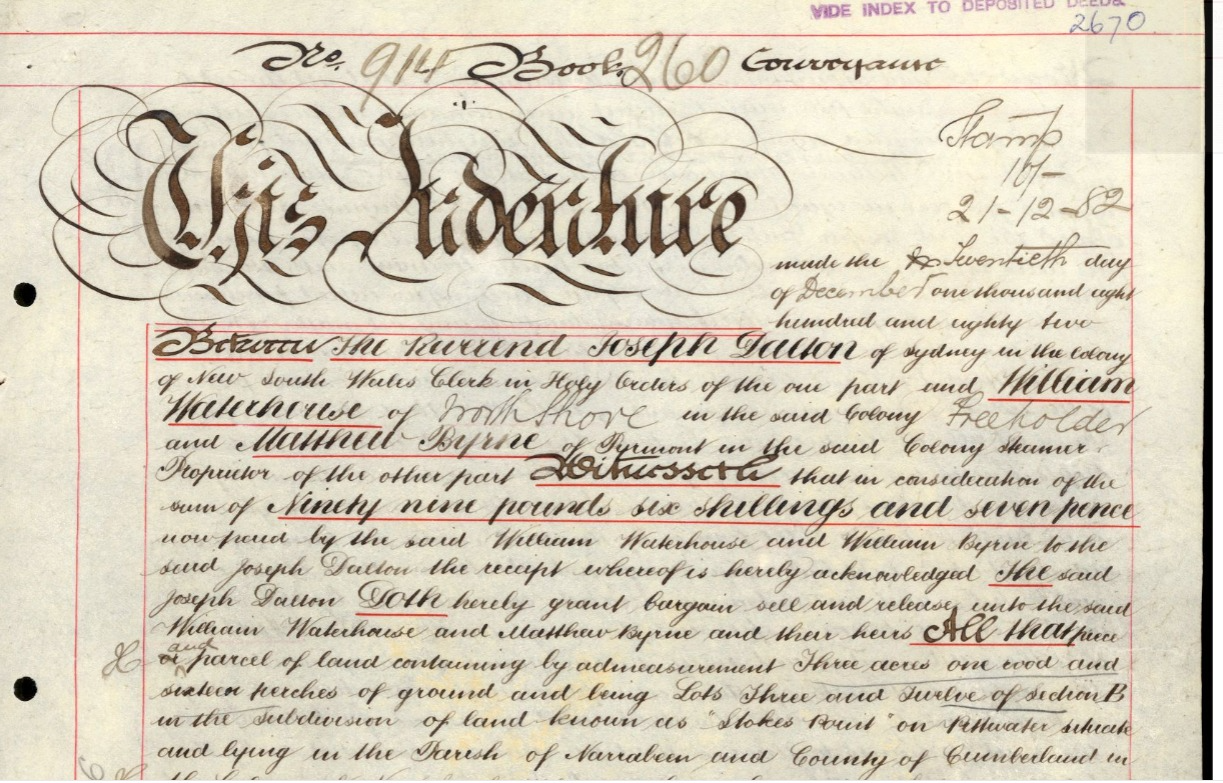 VIDE INDEX TO DEPOSITED DEEDS
2670
No. 914 Book 260 Conveyance
Stamp
10/-
21-12-82
This Indenture
made the Twentieth day
of December one thousand eight
hundred and eighty two
Between The Reverend Joseph Dalton of Sydney in the Colony
of New South Wales Clerk in Holy Orders of the one part and William
Waterhouse of North Shore in the said Colony Freeholder
and Matthew Byrne of Pyrmont in the said Colony Steamer
Proprietor of the other part Witnesseth that in consideration of the
sum of Ninety nine pounds six shillings and seven pence
now paid by the said William Waterhouse and William Byrne to the
said Joseph Dalton the receipt whereof is hereby acknowledged The said
Joseph Dalton Doth hereby grant bargain sell and release unto the said
William Waterhouse and Matthew Byrne and their heirs All that piece
and
or parcel of land containing by admeasurement Three acres one rood and
sixteen perches of ground and being Lots Three and Twelve of Section B
in the Subdivision of land known as "Stokes Point" on Pittwater situate
and lying in the Parish of Narrabeen and County of Cumberland in